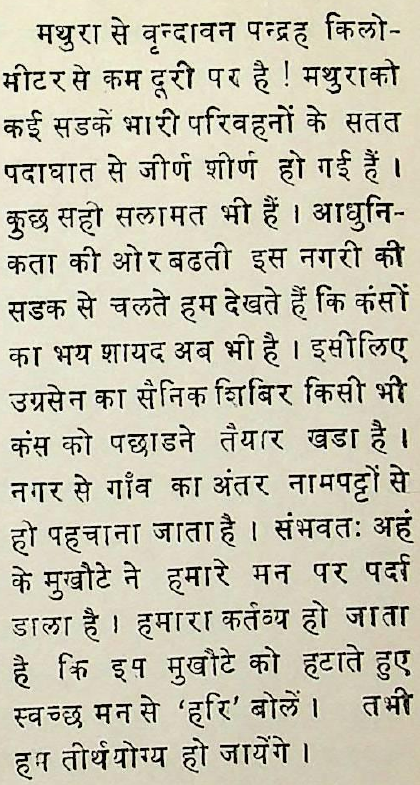 मथुरा से वृन्दावन पन्द्रह किलो-
मीटर से कम दूरी पर है ! मथुरा को
कई सडकें भारी परिवहनों के सतत
पदाघात से जीर्ण शीर्ण हो गई हैं ।
कुछ सही सलामत भी हैं । आधुनि-
कता की ओर बढती इस नगरी की
सडक से चलते हम देखते हैं कि कंसों
का भय शायद अब भी है । इसीलिए
उग्रसेन का सैनिक शिबिर किसी भी
कंस को पछाडने तैयार खडा है ।
नगर से गाँव का अंतर नामपट्टों से
हो पहचाना जाता है । संभवतः अहं
के मुखौटे ने हमारे मन पर पर्दा
डाला है । हमारा कर्तव्य हो जाता
है कि इस मुखौटे को हटाते हुए
स्वच्छ मन से ‘हरि’ बोलें । तभी
हम तीर्थयोग्य हो जायेंगे ।